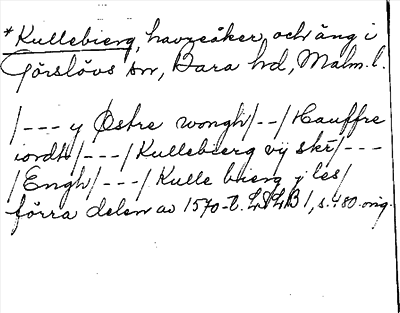 *Kullebierg, havreåker och äng i
Görslövs sn, Bara hd, Malm. l.
/--- y Østre wongh/--/Hauffre
iordh/---/Kullebierg vij skr/---
/Engh/---/Kulle bierg j les/
förra delen av 1570-t. LSLB 1, s. 480. orig.